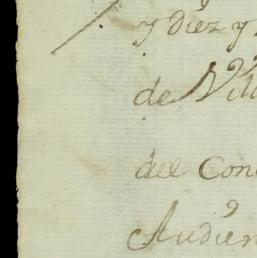 y diez y
de Vill
del Con
Audien